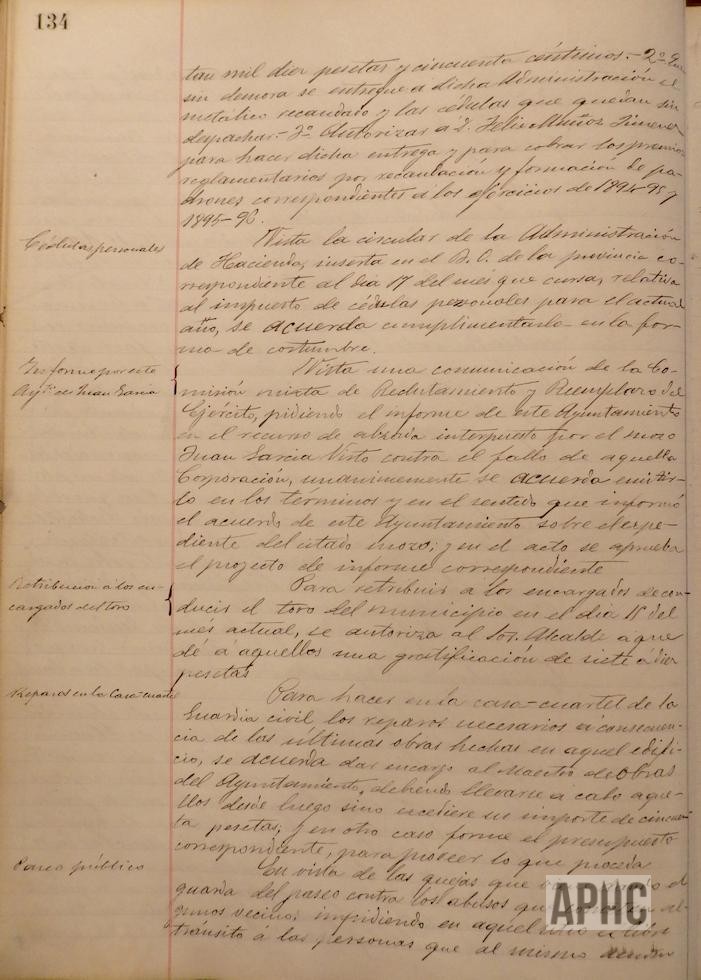 134
tan mil diez pesetas y cincuenta céntimos.- 2º Que
sin demora se entregue a dicha Administración el
metálico recaudado y las cédulas que quedan sin
despachar.- 3º Autorizar á D. Felix Muñoz Jimenez
para hacer dicha entrega y para cobrar los premios
reglamentarios por recaudación y formación de pa-
drones correspondientes á los ejercicios de 1894-95 y
1895-96.
Cédulas personales
Vista la circular de la Administración
de Hacienda, inserta en el B. O. de la provincia co-
rrespondiente al dia 17 del més que cursa, relativa
al impuesto de cédulas personales para el actual
año, se acuerda cumplimentarla en la for-
ma de costumbre.
Informe por este
Ayto. de Juan Garcia
Vista una comunicación de la Co-
misión mixta de Reclutamiento y Reemplazo del
Ejército, pidiendo el informe de este Ayuntamiento
en el recurso de alzada interpuesto por el mozo
Juan Garcia Visto contra el fallo de aquella
Corporación, unanimemente se acuerda emitir-
lo en los términos y en el sentido que informó
el acuerdo de este Ayuntamiento sobre el expe-
diente del citado mozo; y en el acto se aprueba
el proyecto de informe correspondiente
Retribución á los en-
cargados del toro
Para retribuir a los encargados de con-
ducir el toro del municipio en el dia 15 del
més actual, se autoriza al Sor. Alcalde a que
dé á aquellos una gratificación de siete á diez
pesetas
Reparos en la Casa-cuartel
Para hacer en la casa-cuartel de la
Guardia civil los reparos necesarios á consecuen-
cia de las últimas obras hechas en aquel edifi-
cio, se acuerda dar encargo al Maestro de obras
del Ayuntamiento, debiendo llevarse á cabo aque-
llos desde luego sino excediere su importe de cincuen-
ta pesetas; y en otro caso forme el presupuesto
correspondiente, para proveer lo que proceda
Paseo público
En vista de las quejas que el
guarda del paseo contra los abusos que al-
gunos vecinos impidiendo en aquel sitio el libre
tránsito á las personas que al mismo
APHC.